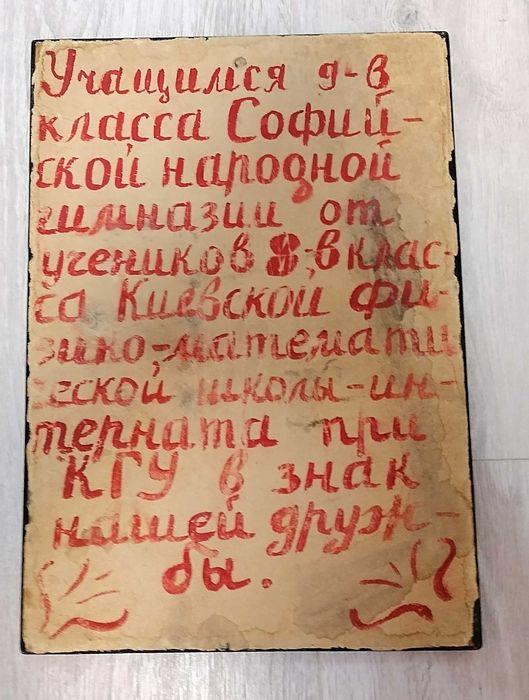 Учащимся 9-в
класса Софий-
ской народной
гимназии от
учеников 8-в клас-
са Киевской фи-
зико-математи
ческой школы-ин-
терната при
КГУ в знак
нашей друж-
бы.